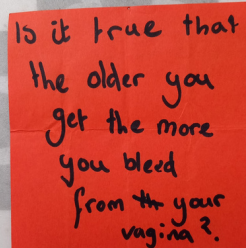 Is it true that
the older you
get the more
you bleed
from your
vagina?.